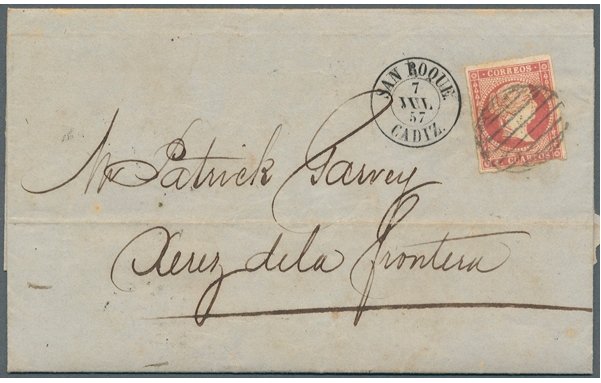 SAN ROQUE.
7
JUL
57
CADIZ.
CORREOS
CUARTOS
Mr Patrick Garvey
Xerez de la Frontera